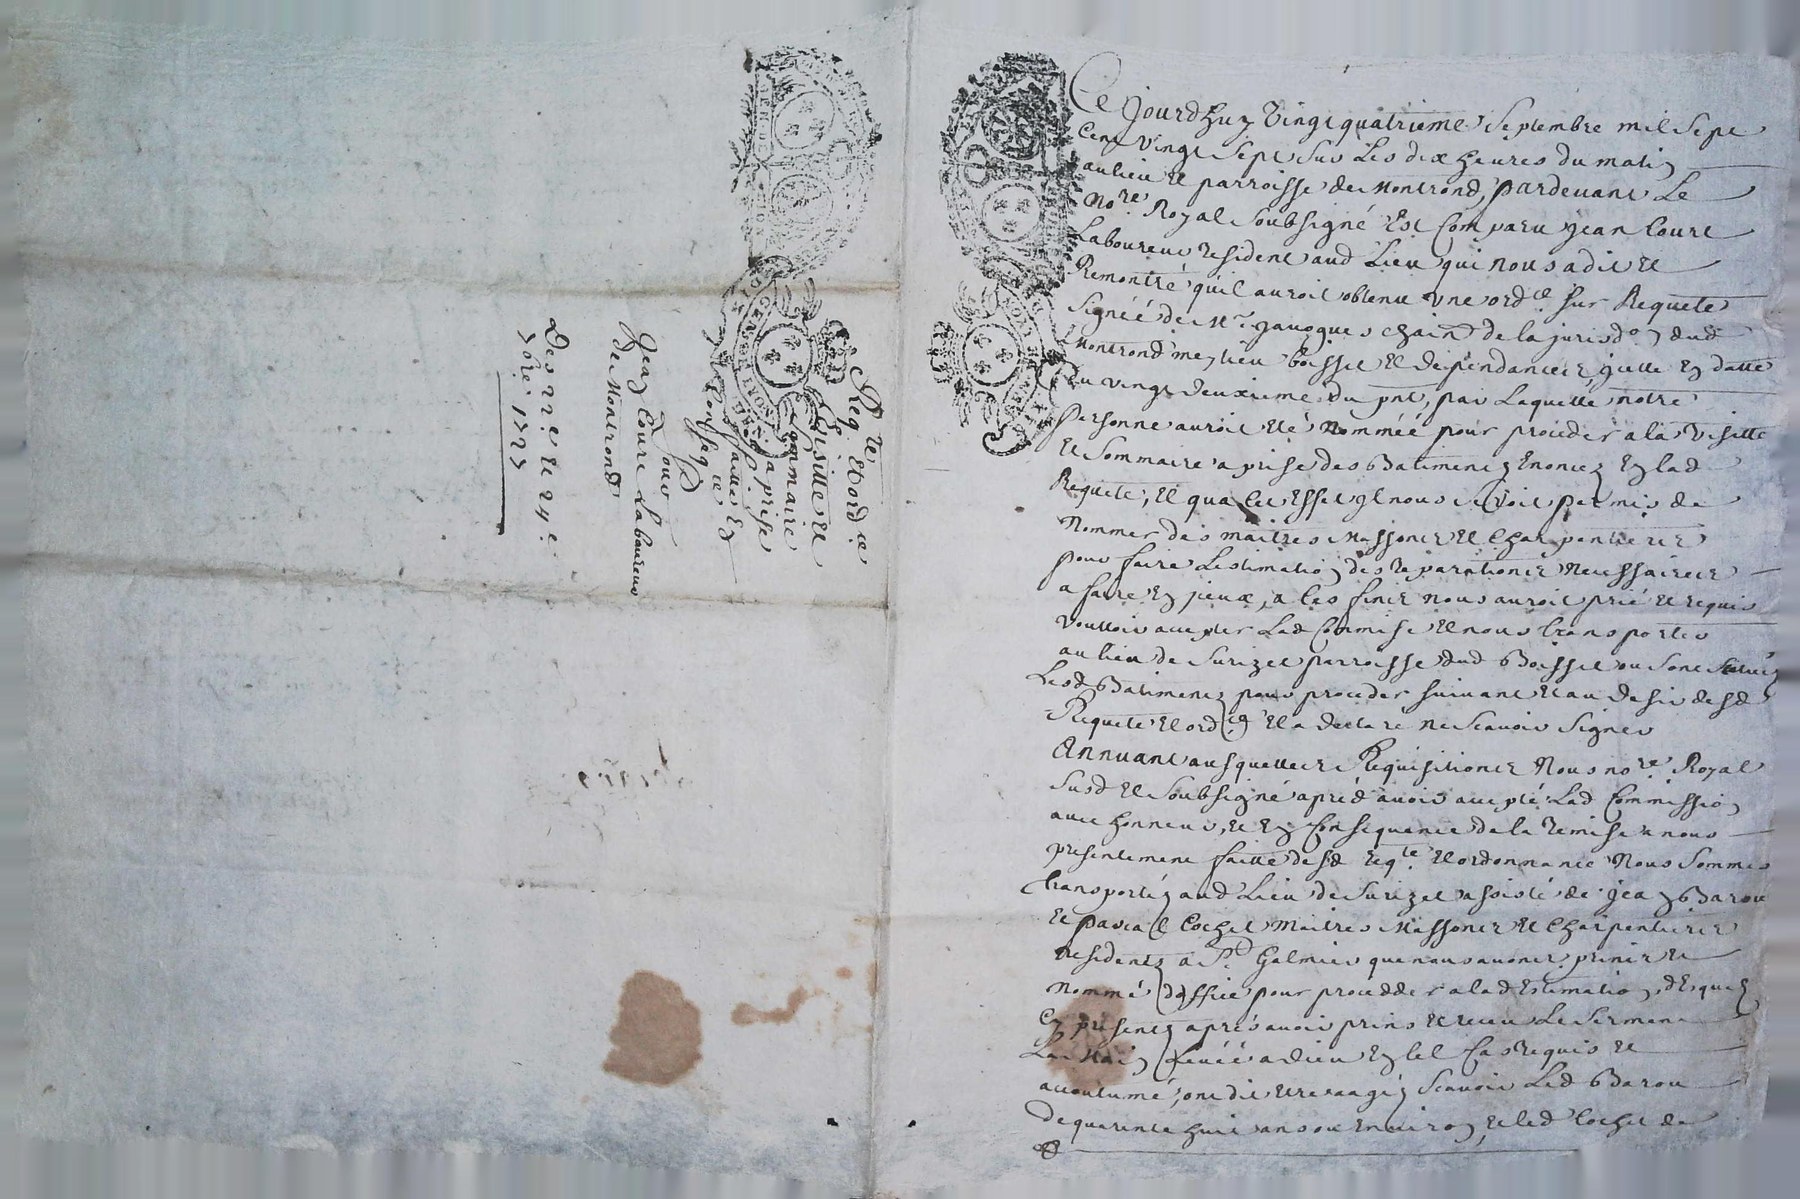 Ce Jourdhuy Vingt quatrieme Septembre mil Sept
Cent Vingt Sept Sur Les dix heures du matin
au lieu et parroisse de Montrond, pardevant Le
No.re Royal Soubsigné Est Comparu Jean Coure
Laboureur resident aud Lieu qui nous a dit et
Remontré quil auroit obtenu une ord.ce sur Requete
Signéé de Mr. gauoques chain de la jurisd.on dud
Montrond meylieu boisset et dependances, jcelle en datte
du vingt deuxieme du pnt, par Laquelle notre
Personne auroit eté Nomméé pour proceder a la Visitte
et Sommaire aprise des Batiments Enoncez en lad
Requete, et qua cet effet jl nous seroit permis de
nommer des maitres Massons et Charpentiers
pour faire Lestimation des reparations Necessaires
a faire en jceux, a ces fins nous auroit prié et requis
voulloir accepter Lad Commise et nous transporter
au lieu de Surizet parroisse dud Boisset ou sont Scituez
Lesd Batiments pour proceder suivant et au desir desd
Requete et ord.ce et a declaré ne Scauoir Signer
Annuant ausquelles Requisitions Nous no.re Royal
Susd et Soubsigné apréd auoir accepté Lad Commission
auec honneur, et en Consequence de la remise a nous
presentement faitte desd req.te et ordonnance Nous Sommes
transportéz aud Lieu de Surizet assisté de jean Barou
et pascal Cochet Maitres Massons et Charpentiers
residents a St. Galmier que nous auons prins et
nommé doffice pour procedder a lad Estimation, desquels
cy presents apres auoir prins et receu Le Serment
La Main Leuéé a dieu en tel Cas requis et
accoutumé, ont dit etre aagéz Scauoir Led Barou
de quarente huit ans ou enuiron, et led Cochet de
Req.te et ord.ce
Visitte et
Sommaire aprise
faitte en
Conseq.ce
Pour
Jean Coure Laboureur
de Montrond
Des 22.e et 24.e
7bre 1727